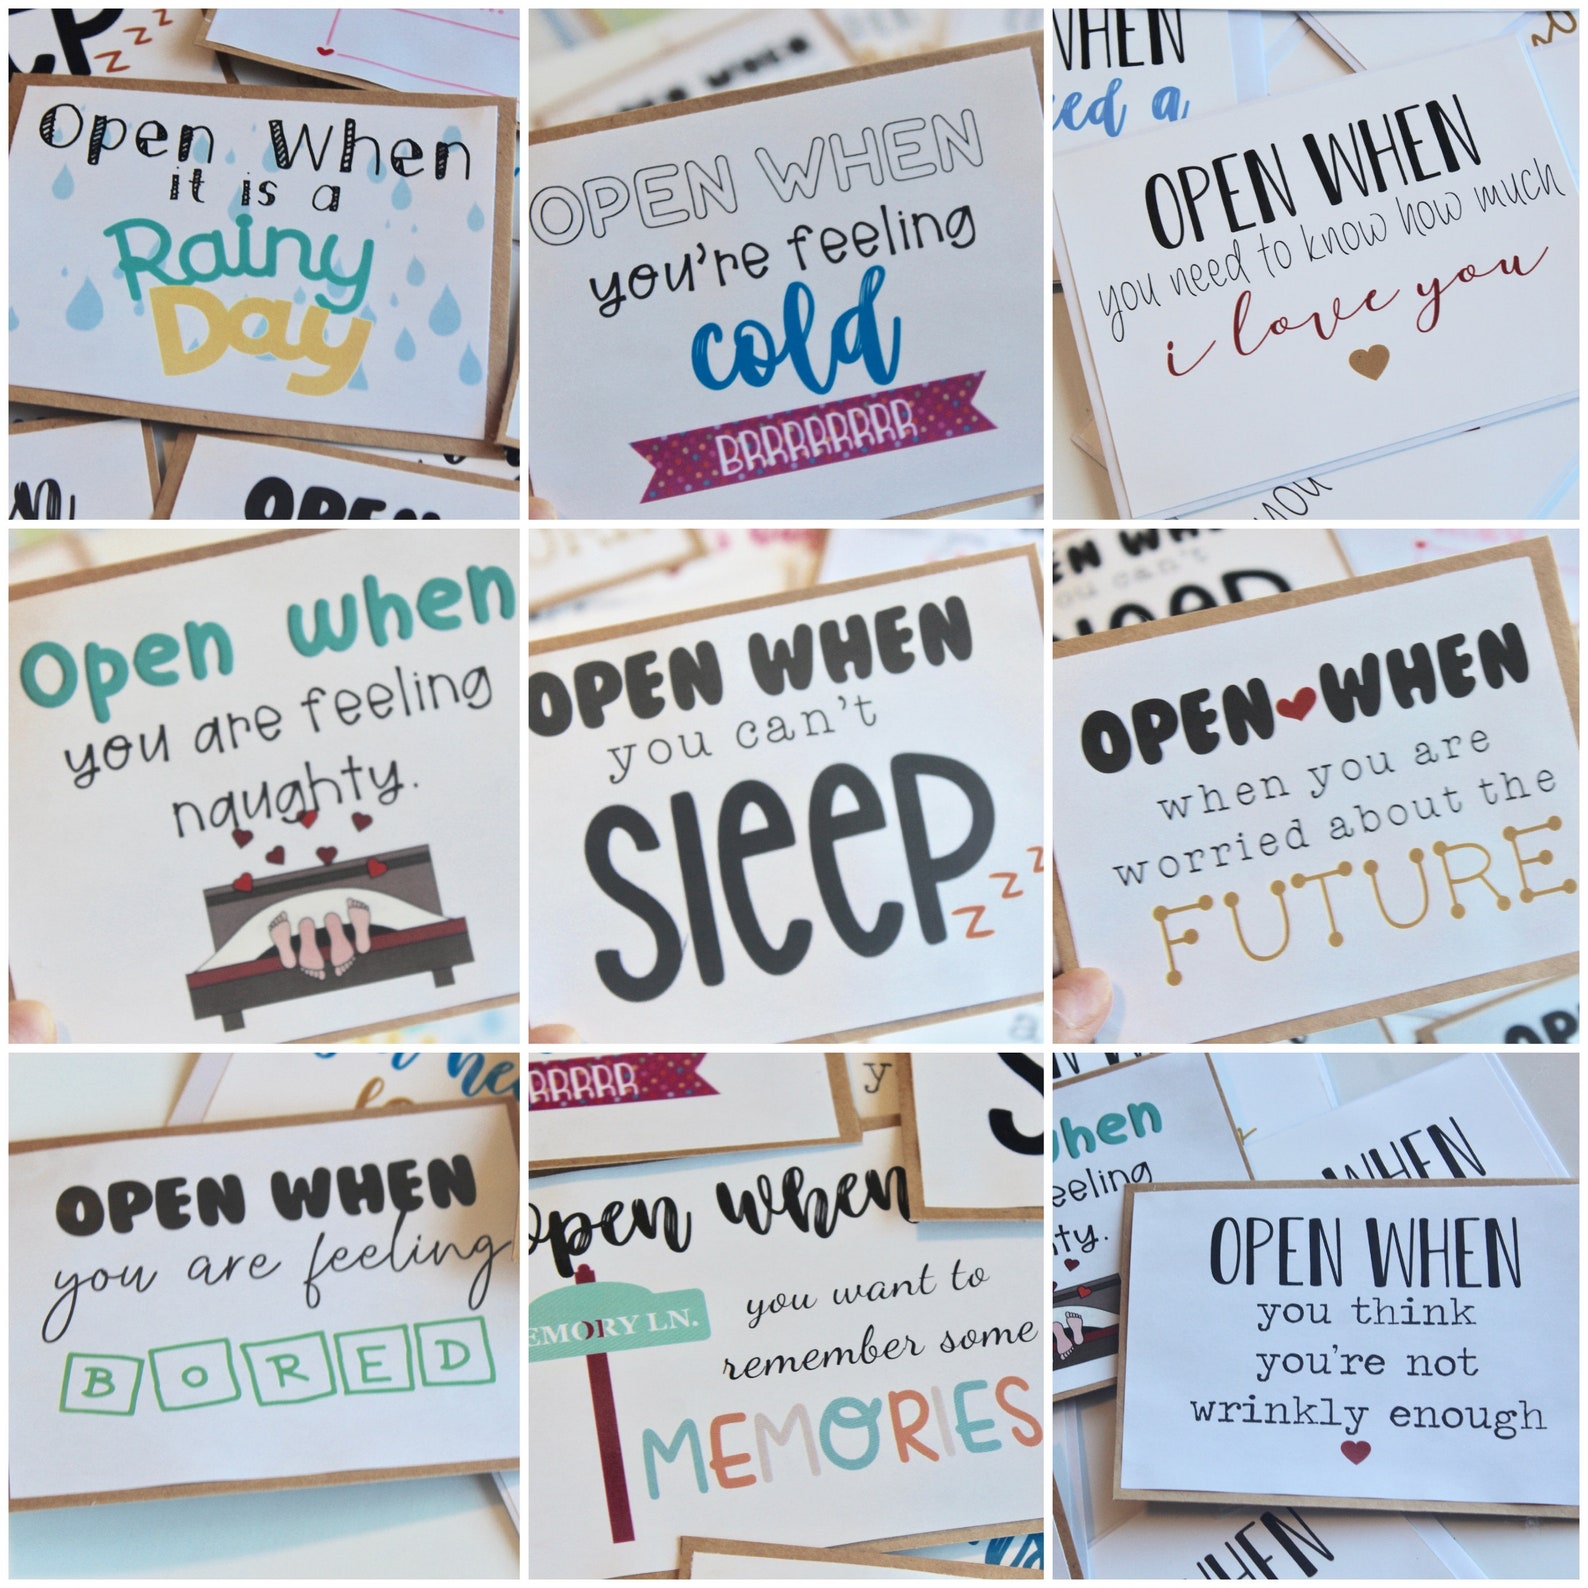 Open When
it is a
Rainy
Day
OPEN
OPEN WHEN
you're feeling
cold
BRRRRRRRR
WHEN
OPEN WHEN
you need to know how much
i love you
you
Open when
you are feeling
naughty.
OPEN WHEN
you can't
SLEEP
z z z
OPEN WHEN
when you are
worried about the
FUTURE
OPEN WHEN
you are feeling
BORED
open when
MEMORY LN.
you want to
remember some
MEMORIES
when
feeling
WHEN
OPEN WHEN
you think
you're not
wrinkly enough
WHEN